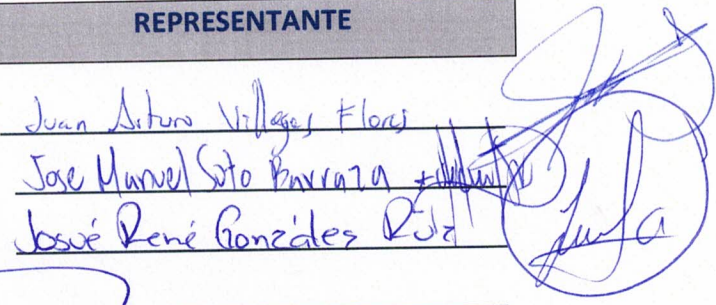 REPRESENTANTE
Juan Arturo Villegas Flores
Jose Manuel Soto Barraza
Josué René González Ruiz